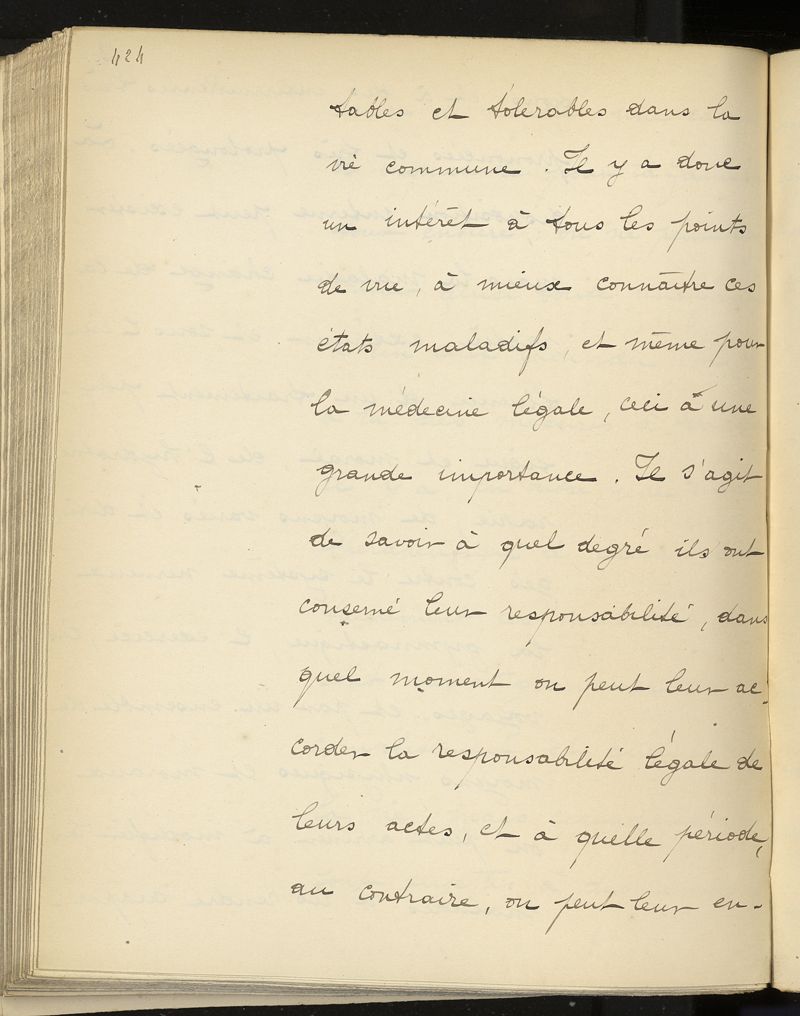 424
tables et tolérables dans la
vie commune. Il y a donc
un intérêt à tous les points
de vue, à mieux connaître ces
états maladifs, et même pour
la médecine légale, ceci a une
grande importance. Il s'agit
de savoir à quel degré ils ont
conservé leur responsabilité, dans
quel moment on peut leur ac-
corder la responsabilité légale de
leurs actes, et à quelle période,
au contraire, on peut leur en-